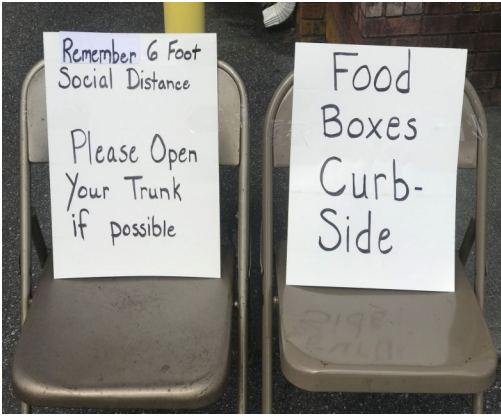 Remember 6 Foot
Social Distance
Please Open
Your Trunk
if possible
Food
Boxes
Curb-
Side